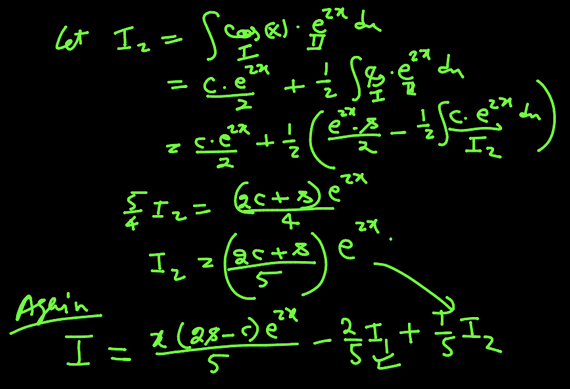 Let I₂ = ∫ cos(x) · e^{2x} dx
I II
= c·e^{2x}/2 + 1/2 ∫ s · e^{2x} dx
I II
= c·e^{2x}/2 + 1/2 ( e^{2x}·s/2 - 1/2 ∫ c·e^{2x} dx )
I₂
5/4 I₂ = (2c+s) e^{2x}/4
I₂ = ( 2c+s/5 ) e^{2x}.
Again
I = x(2s-c)e^{2x}/5 - 2/5 I₁ + 1/5 I₂